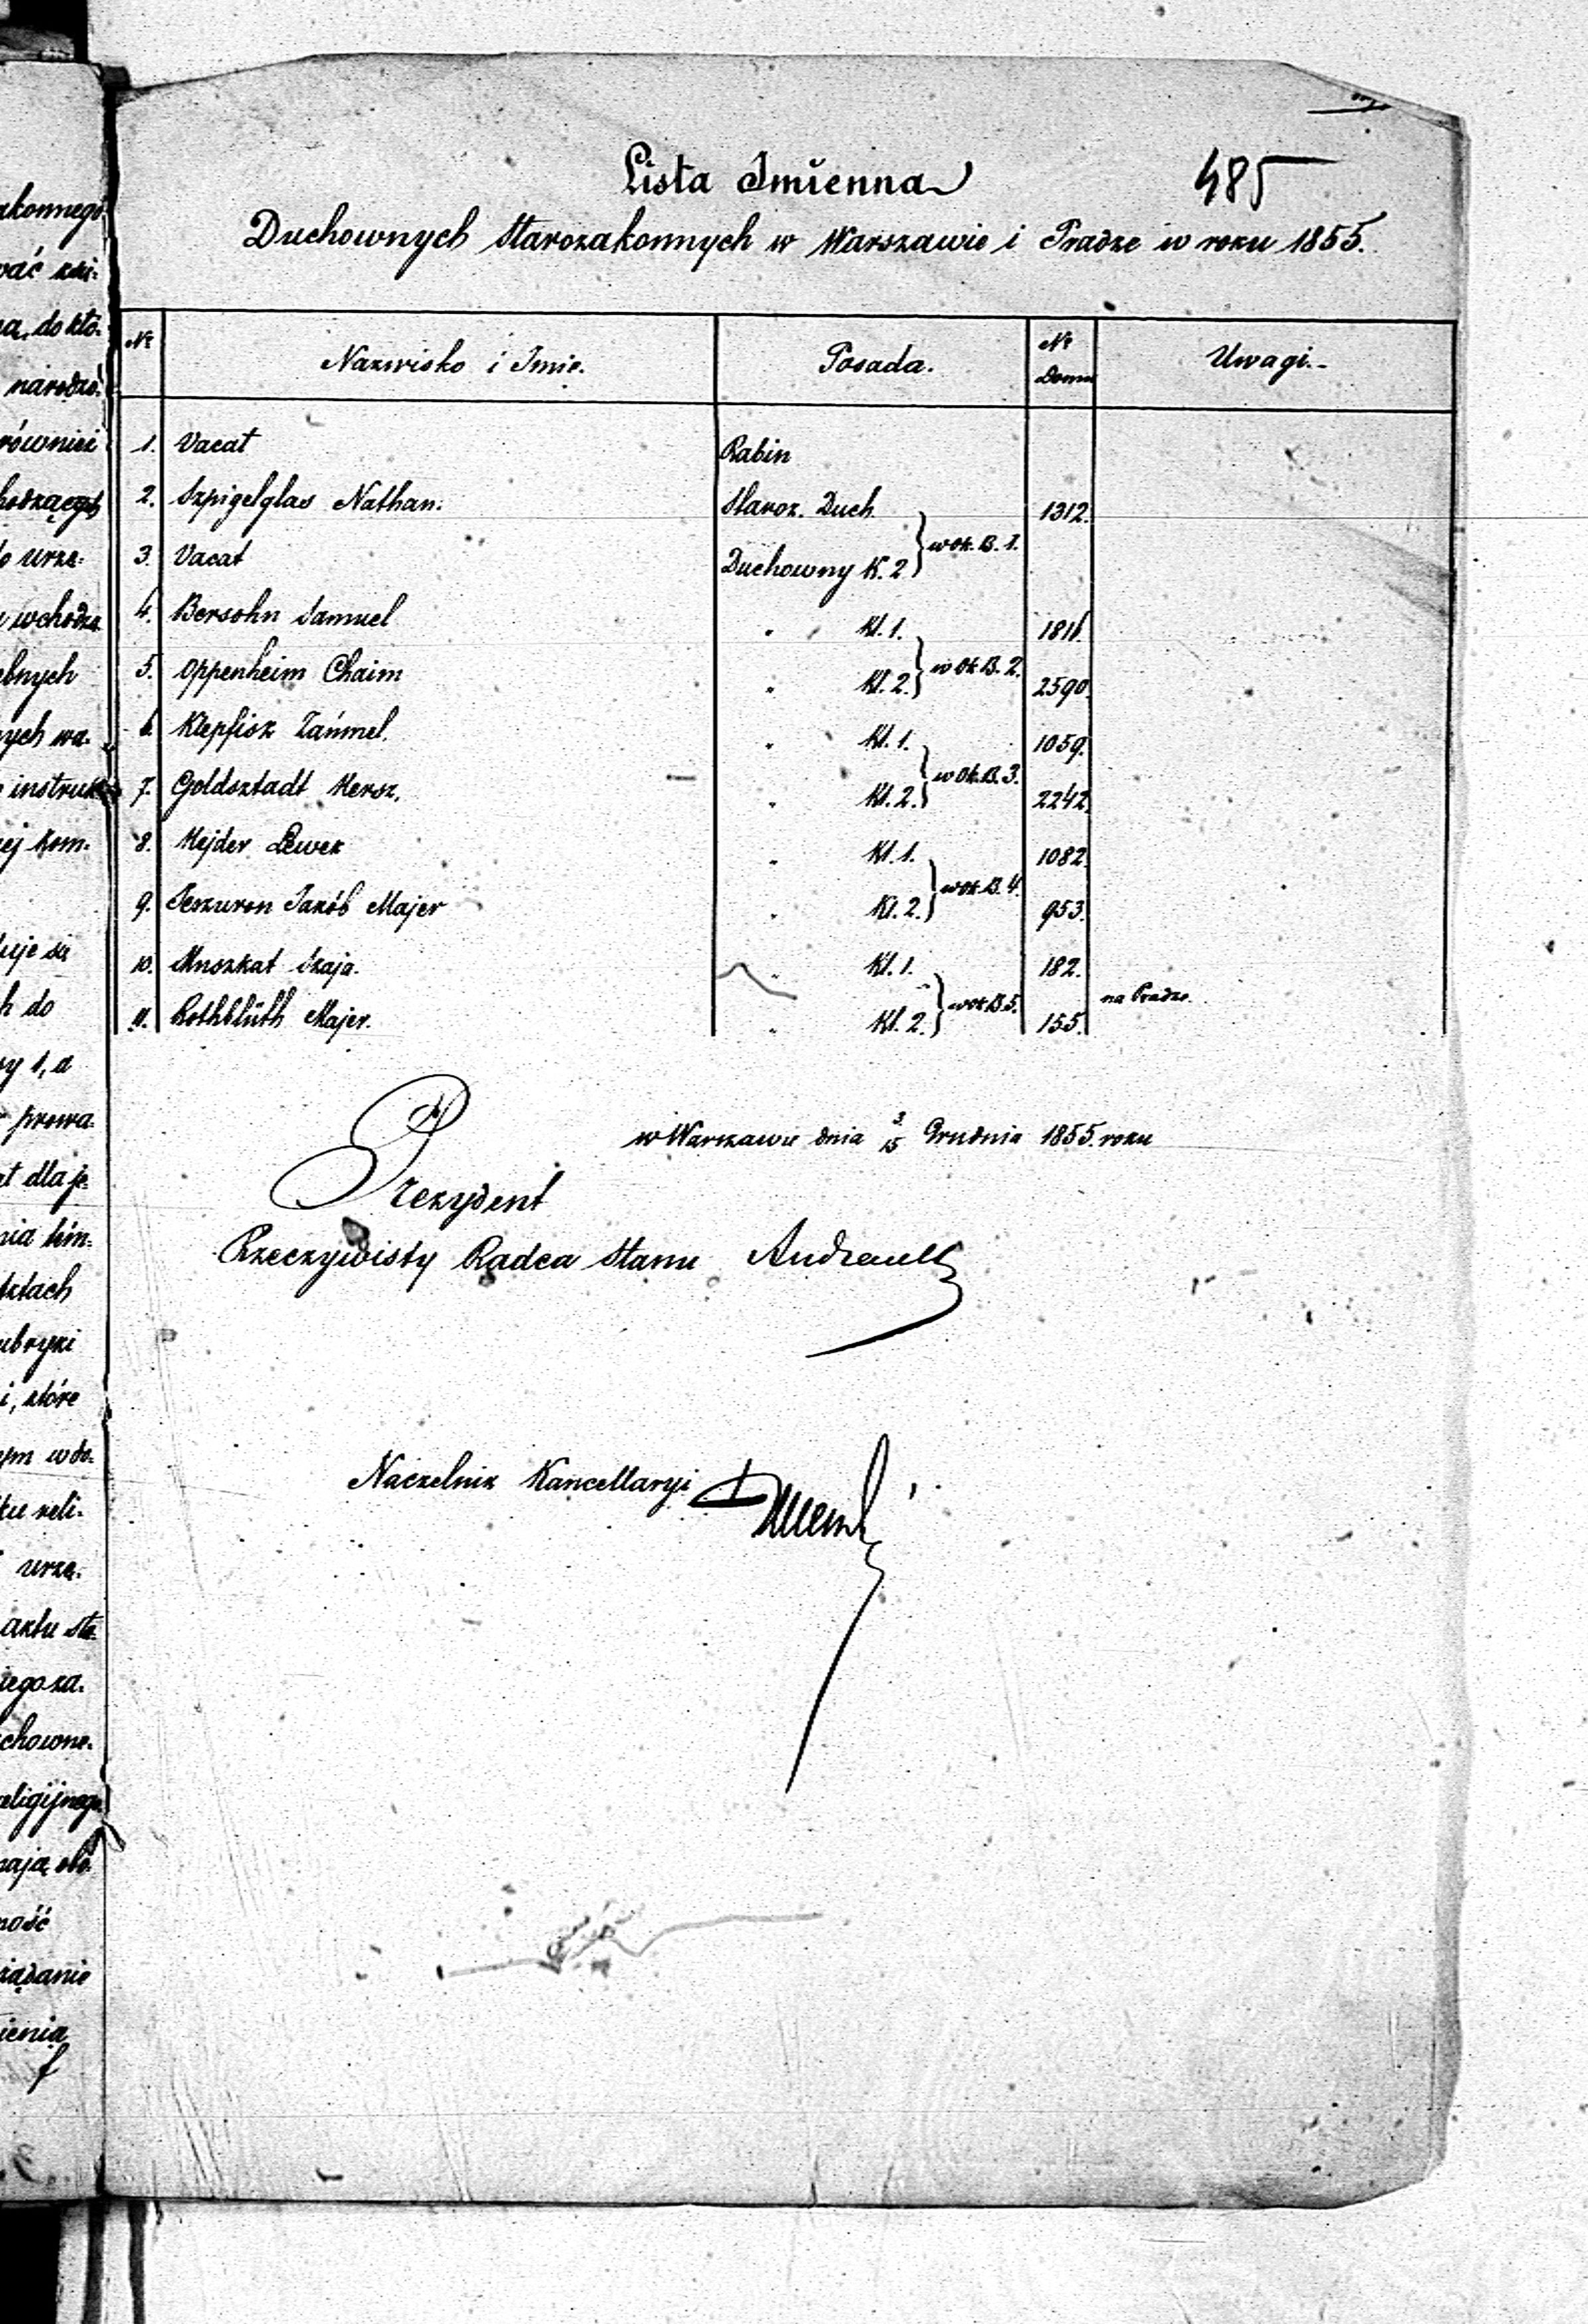 485
Lista Imienna
Duchownych Starozakonnych w Warszawie i Pradze w roku 1855.
№ Nazwisko i Imie. Posada. № Domu Uwagi.
1. Vacat Rabin
2. Szpigelglas Nathan. Staroz. Duch. 1312.
3. Vacat Duchowny K. 2 } w Ok. B. 1.
4. Bersohn Samuel " Kl. 1. 1811.
5. Oppenheim Chaim " Kl. 2. } w Ok. B. 2. 2590.
6. Klepfisz Zańmel. " Kl. 1. 1059.
7. Goldsztadt Hersz. " Kl. 2. } w Ok. B. 3. 2242.
8. Hejder Lewek " Kl. 1. 1082.
9. Jeszuron Jakób Majer " Kl. 2. } w Ok. B. 4. 953.
10. Muszkat Szaja. " Kl. 1. 182.
11. Rothblüth Majer. " Kl. 2. } w Ok. B. 5. 155. na Pradze.
w Warszawie dnia 3/15 Grudnia 1855. roku
Prezydent
Rzeczywisty Radca Stanu Andrault
Naczelnik Kancellaryi
akonnego
wać
do któ-
również
hodzących
do urzę-
wchodzą
ebnych
nych wa-
instruk
ej kom-
uje się
h do
y 1, a
prowa-
t dla je-
ktach
ubryki
i, które
ym w do-
tu reli-
urzę-
aktu sta-
iego za-
chowne-
religijnego
ność
ienia